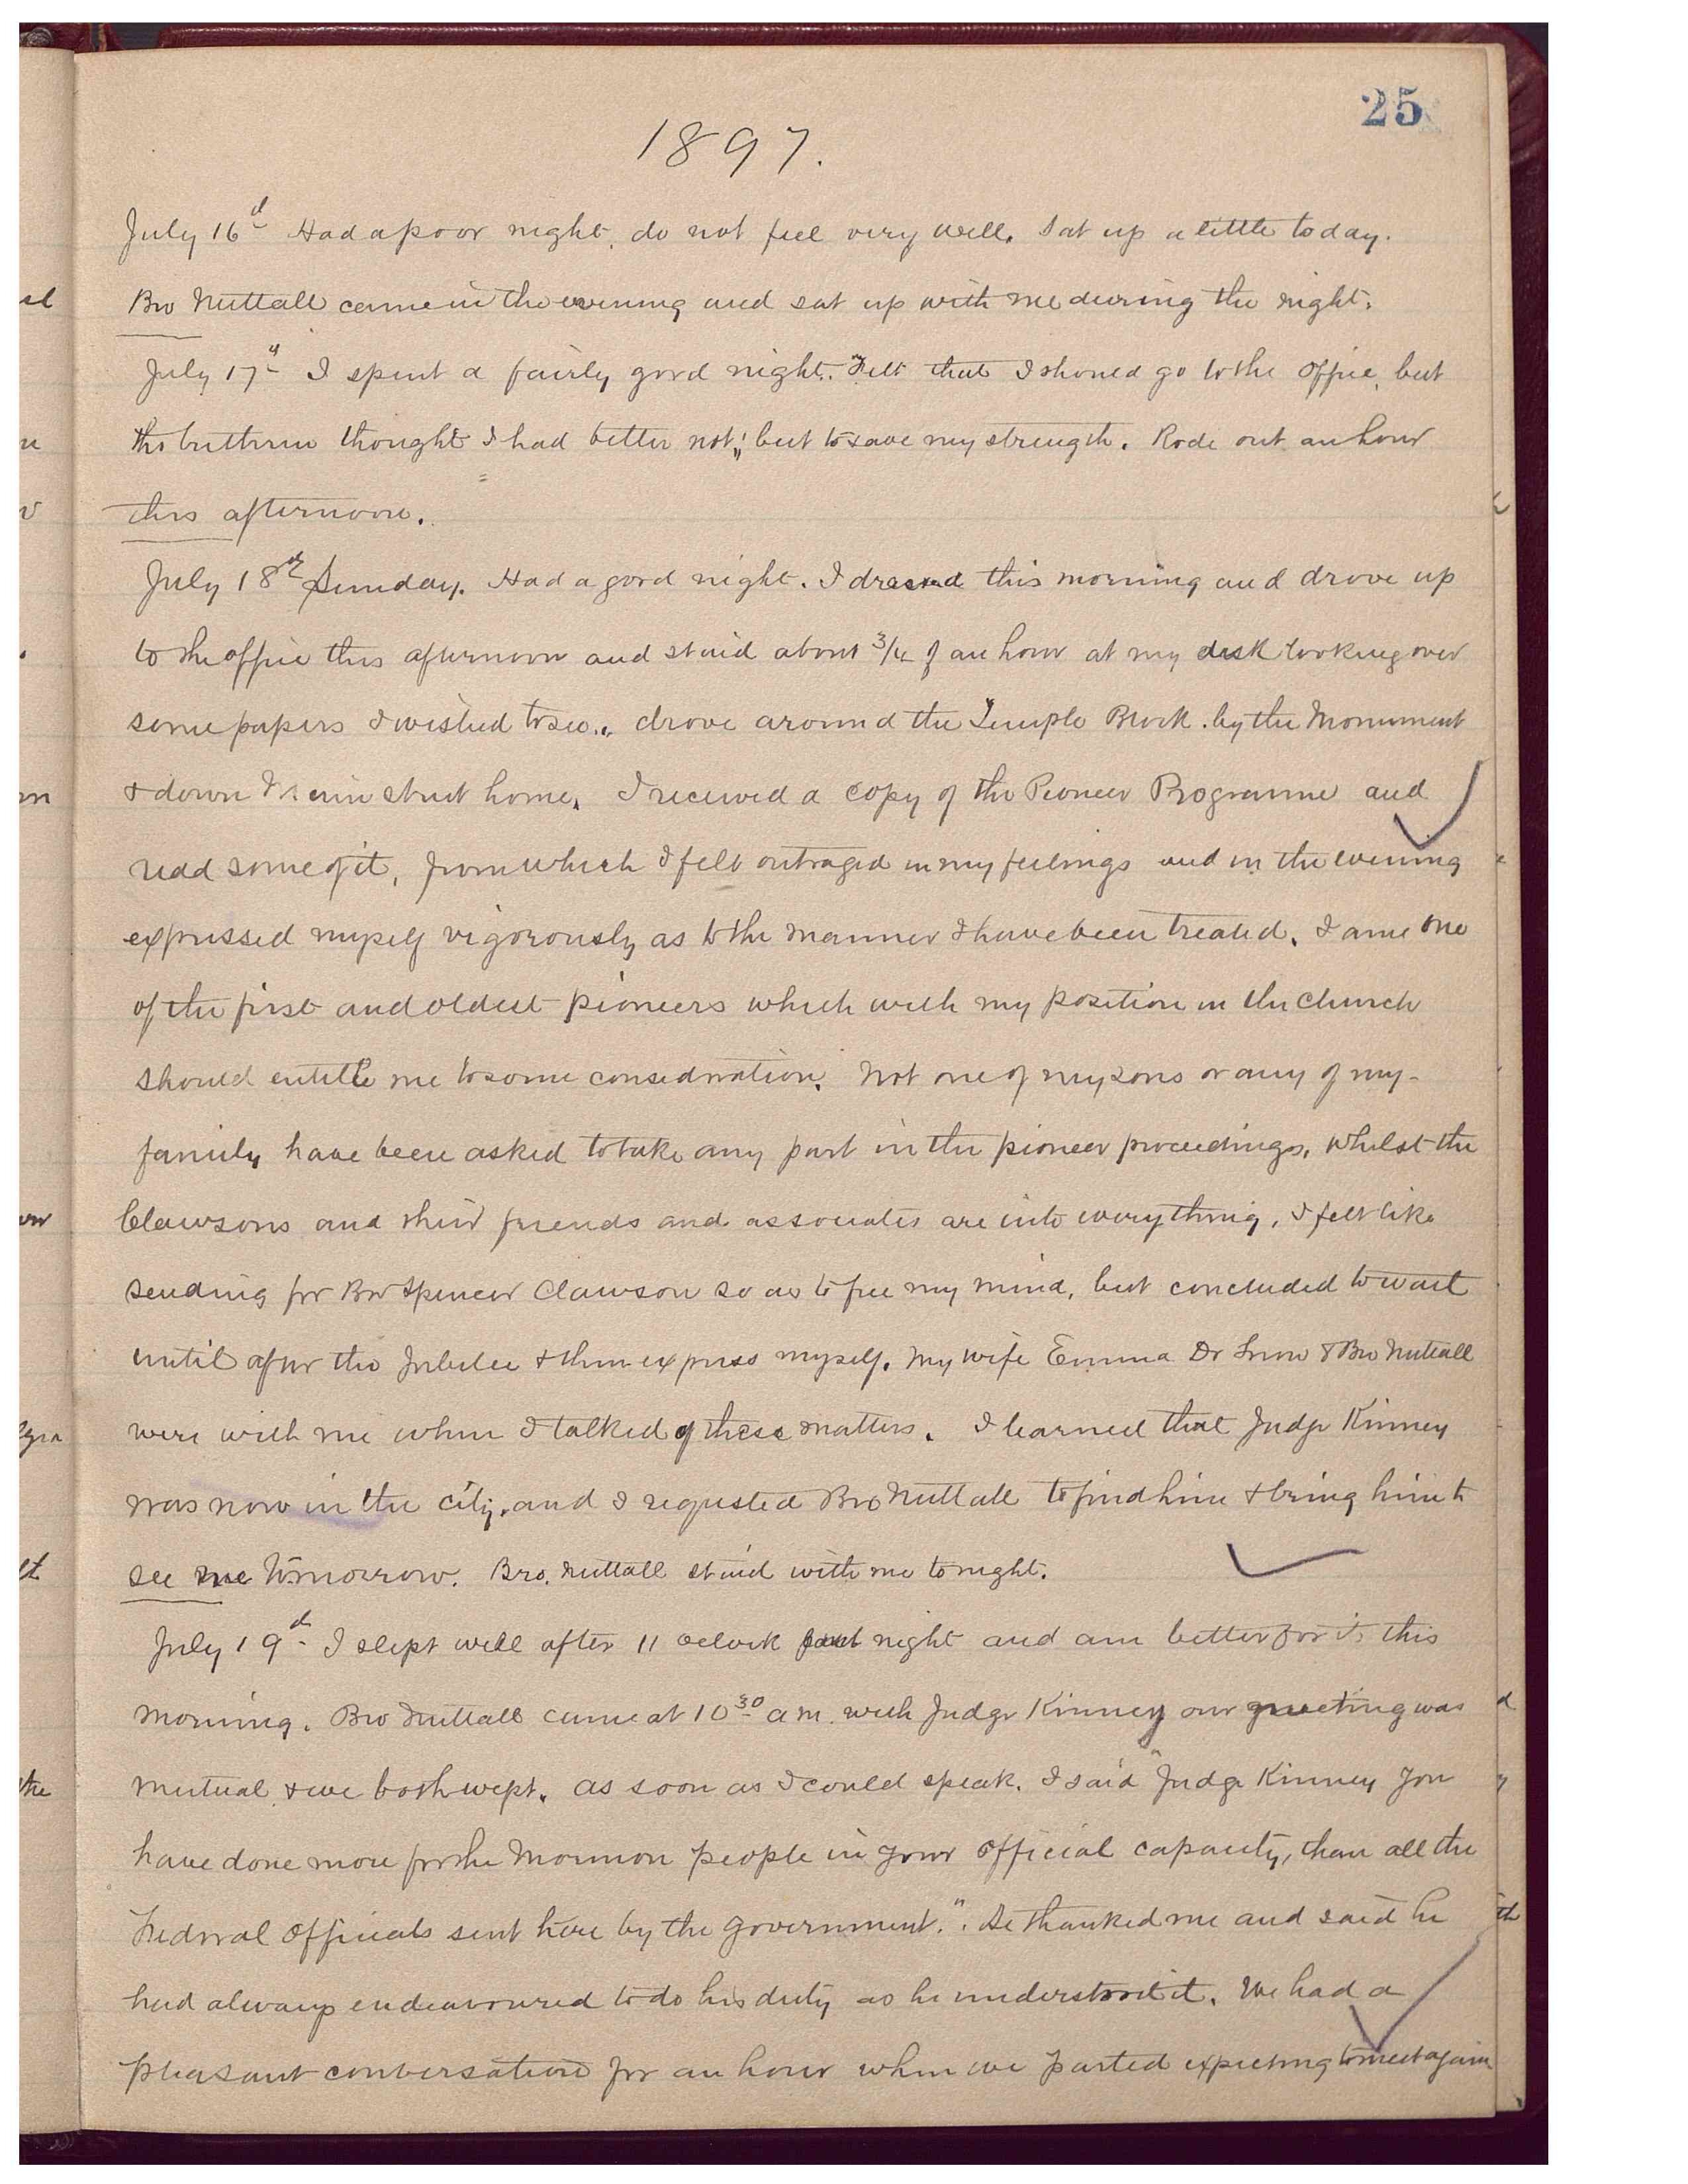 25
1897.
July 16th Had a poor night, do not feel very well. Sat up a little today.
Bro Nuttall came in the evening and sat up with me during the night.
July 17th I spent a fairly good night. Felt that I should go to the office, but
the brethren thought I had better not, but to save my strength. Rode out an hour
this afternoon.
July 18th Sunday. Had a good night. I dressed this morning and drove up
to the office this afternoon and staid about 3/4 of an hour at my desk looking over
some papers I wished to see. drove around the Temple Block by the Monument
& down Main street home. I received a copy of the Pioneer Programme and
read some of it, from which I felt outraged in my feelings and in the evening
expressed myself vigorously as to the manner I have been treated. I am one
of the first and oldest pioneers which with my position in the Church
should entitle me to some consideration. Not one of my sons or any of my
family have been asked to take any part in the pioneer proceedings, whilst the
Clawsons and their friends and associates are into everything, I felt like
sending for Bro Spencer Clawson so as to free my mind, but concluded to wait
until after the Jubilee & then express myself. My wife Emma Dr Snow & Bro Nuttall
were with me when I talked of these matters. I learned that Judge Kinney
was now in the city, and I requested Bro Nuttall to find him & bring him to
see me tomorrow. Bro. Nuttall staid with me tonight.
July 19th I slept well after 11 oclock last night and am better for it this
morning. Bro Nuttall came at 10 30 a m. with Judge Kinney our greeting was
mutual & we both wept. as soon as I could speak. I said "Judge Kinney you
have done more for the Mormon people in your official capacity, than all the
Federal Officials sent here by the government." He thanked me and said he
had always endeavoured to do his duty as he understood it. We had a
pleasant conversation for an hour when we parted expecting to meet again